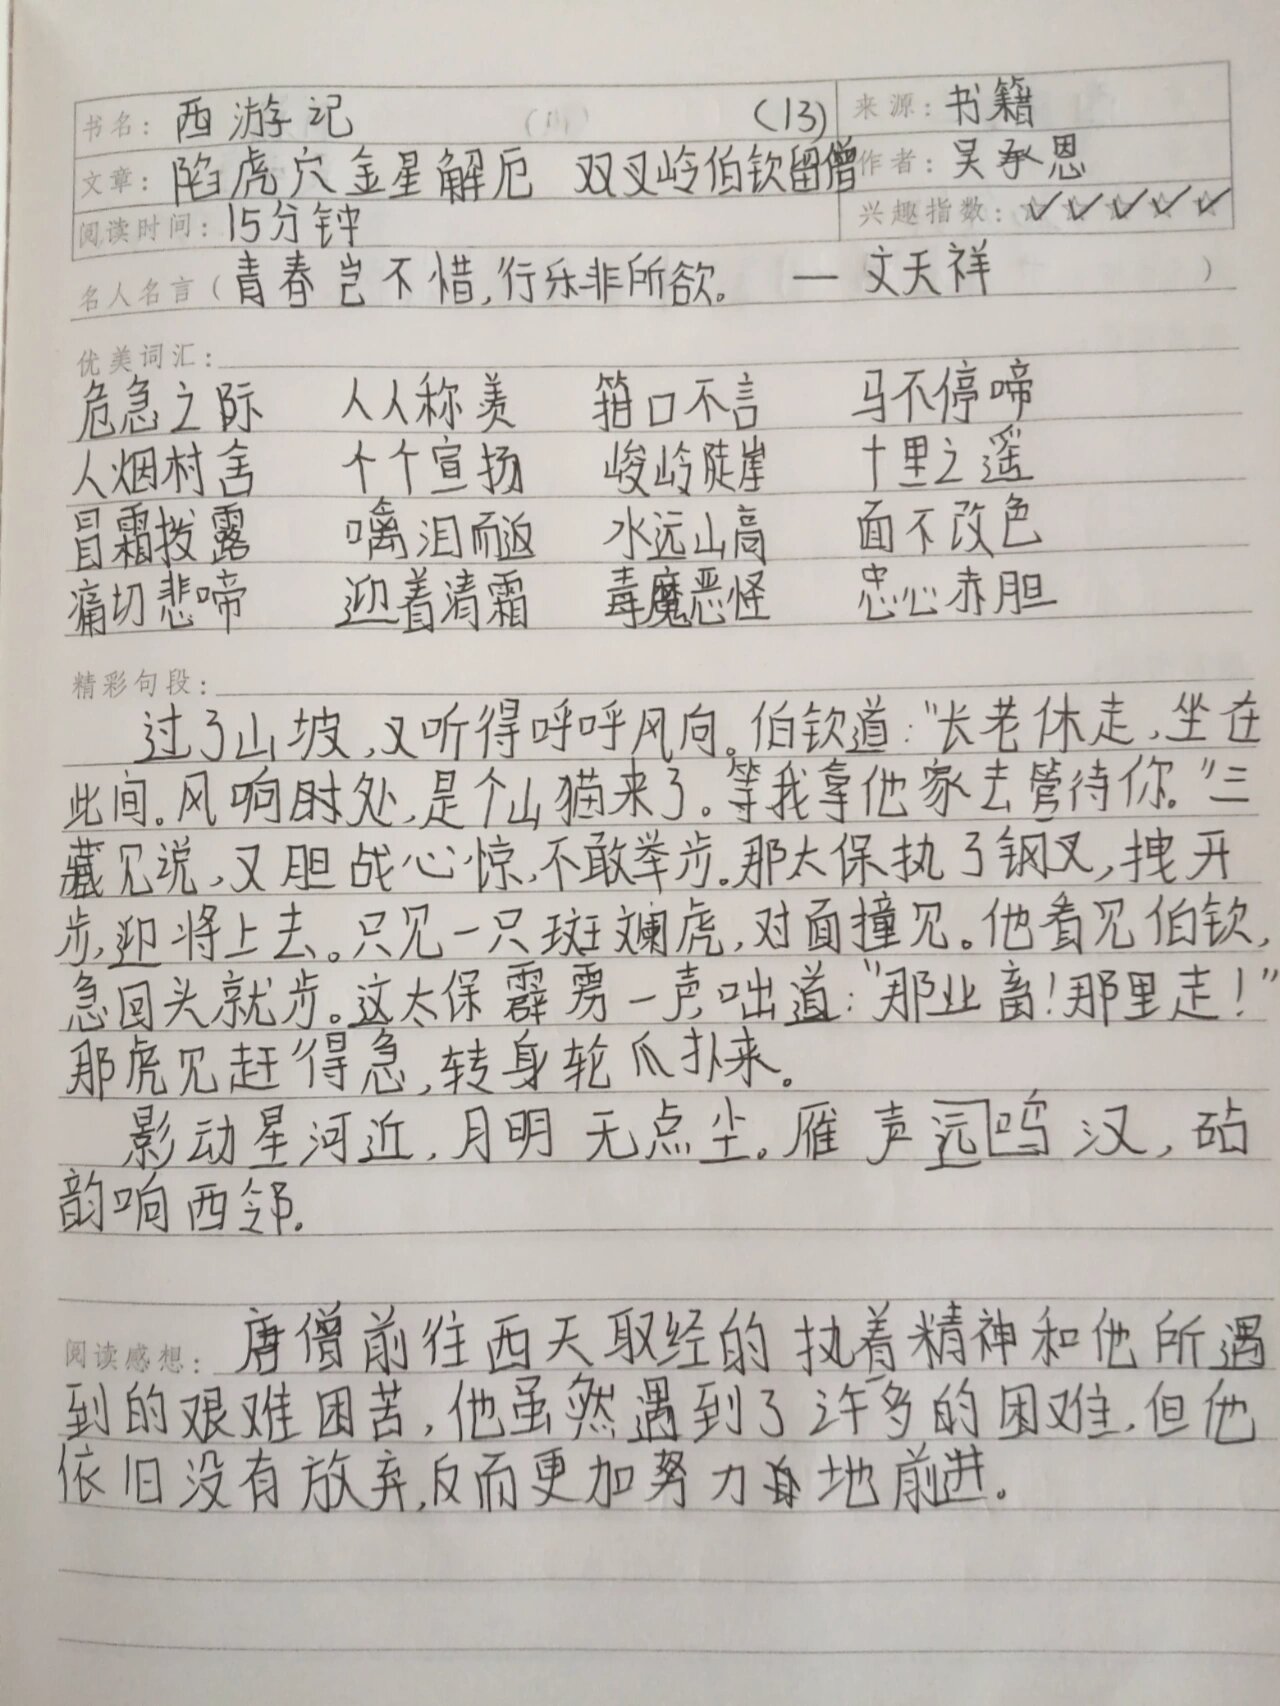 书名：西游记 (13) 来源：书籍
文章：陷虎穴金星解厄 双叉岭伯钦留僧 作者：吴承恩
阅读时间：15分钟 兴趣指数：
名人名言（青春岂不惜，行乐非所欲。 — 文天祥）
优美词汇：
危急之际 人人称羡 箝口不言 马不停啼
人烟村舍 个个宣扬 峻岭陡崖 十里之遥
冒霜披露 噙泪而返 水远山高 面不改色
痛切悲啼 迎着清霜 毒魔恶怪 忠心赤胆
精彩句段：
过了山坡，又听得呼呼风向。伯钦道："长老休走，坐在
此间。风响时处，是个山猫来了。等我拿他家去管待你。"三
藏见说，又胆战心惊，不敢举步。那太保执了钢叉，拽开
步，迎将上去。只见一只斑斓虎，对面撞见。他看见伯钦，
急回头就步。这太保霹雳一声，咄道："那业畜！那里走！"
那虎见赶得急，转身轮爪扑来。
影动星河近，月明无点尘。雁声远鸣汉，砧
韵响西邻。
阅读感想：唐僧前往西天取经的执着精神和他所遇
到的艰难困苦，他虽然遇到了许多的困难，但他
依旧没有放弃，反而更加努力地前进。